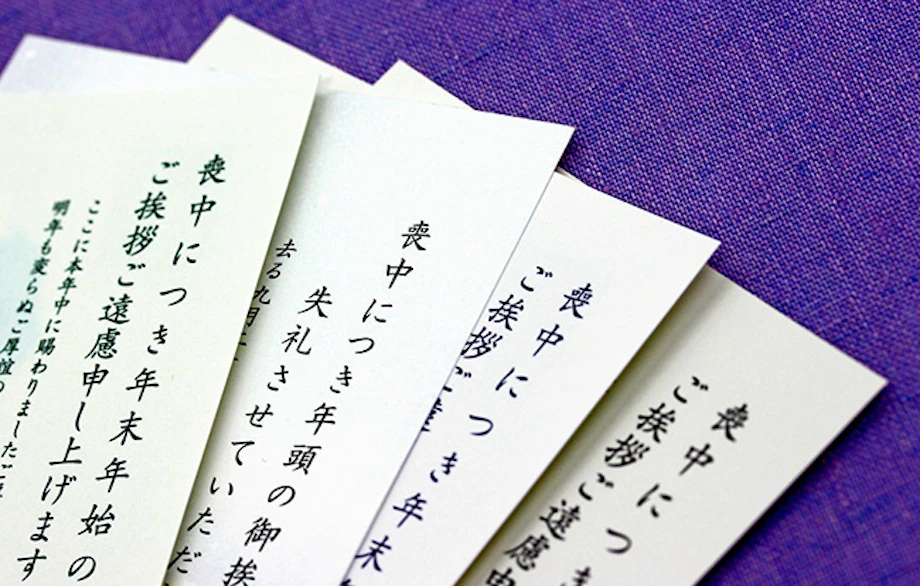 喪中につき年末年始の
ご挨拶ご遠慮申し上げます
ここに本年中に賜わりましたご
明年も変らぬご厚誼の
喪中につき年頭の御挨
失礼させていただ
去る九月
喪中につき年末
ご挨拶ご遠
喪中につき
ご挨拶ご遠慮申